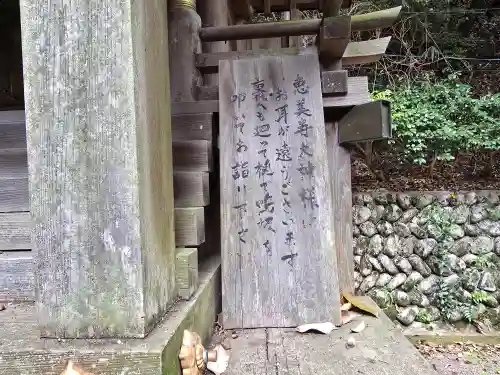 恵美寿大神様は
お耳が遠うございます
裏へも廻って槌で鳴板を
叩いてお詣り下さい